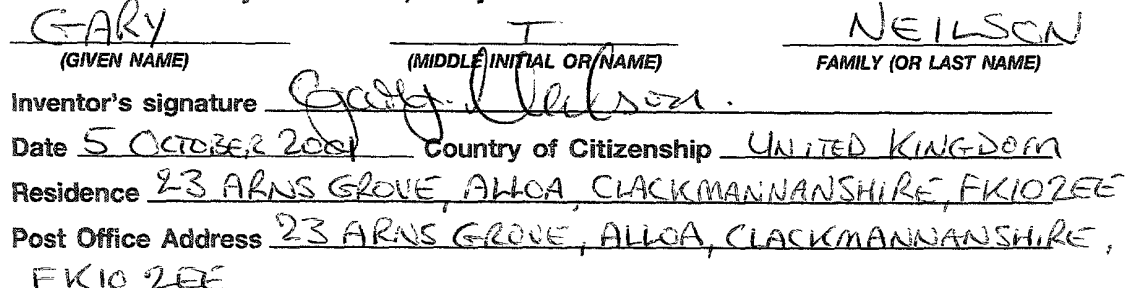 GARY T NEILSON
(GIVEN NAME) (MIDDLE INITIAL OR NAME) FAMILY (OR LAST NAME)
Inventor's signature Gary. Neilson.
Date 5 OCTOBER 2001 Country of Citizenship UNITED KINGDOM
Residence 23 ARNS GROVE, ALLOA, CLACKMANNANSHIRE, FK102EE
Post Office Address 23 ARNS GROVE, ALLOA, CLACKMANNANSHIRE,
FK10 2EE